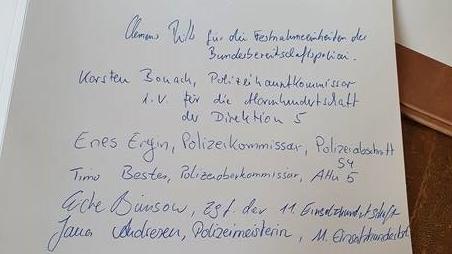 Clemens für die Festnahmeeinheiten der
Bundesbereitschaftspolizei.
Karsten Bonack, Polizeihauptkommissar
i.V. für die Alarmhundertschaft
der Direktion 5
Enes Ergin, Polizeikommissar, Polizeiabschnitt
54
Timo Bester, Polizeioberkommissar, AHu 5
Bünsow, Zgf. der 11. Einsatzhundertschaft
Jana Andresen, Polizeimeisterin, 11. Einsatzhundertsch.